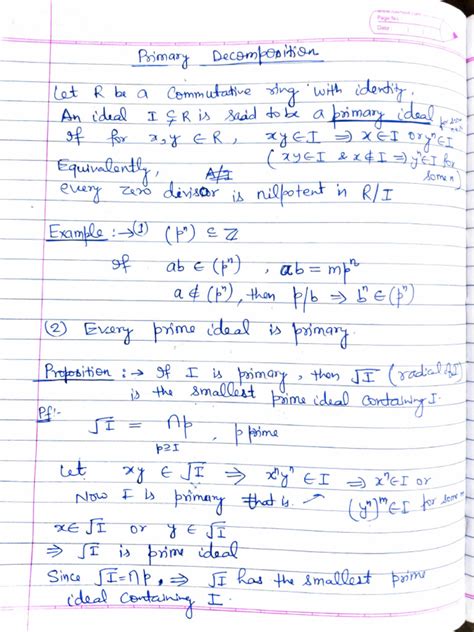 Page No.
Date
Primary Decomposition
Let R be a commutative ring with identity.
An ideal I ⊊ R is said to be a primary ideal for some n
if for x, y ∈ R, xy ∈ I ⇒ x ∈ I or yⁿ ∈ I
(xy ∈ I & x ∉ I ⇒ yⁿ ∈ I for some n)
Equivalently,
every zero divisor is nilpotent in R/I
Example :→ (1) (pⁿ) ⊆ ℤ
if ab ∈ (pⁿ), ab = mpⁿ
a ∉ (pⁿ), then p/b ⇒ bⁿ ∈ (pⁿ)
(2) Every prime ideal is primary.
Proposition :→ If I is primary, then √I (radical I)
is the smallest prime ideal containing I.
Pf:-
√I = ∩p, p prime
p⊇I
Let xy ∈ √I ⇒ xⁿyⁿ ∈ I ⇒ xⁿ ∈ I or
Now I is primary that is. (yⁿ)ᵐ ∈ I for some m
x ∈ √I or y ∈ √I
⇒ √I is prime ideal
Since √I = ∩p, ⇒ √I has the smallest prime
ideal containing I.